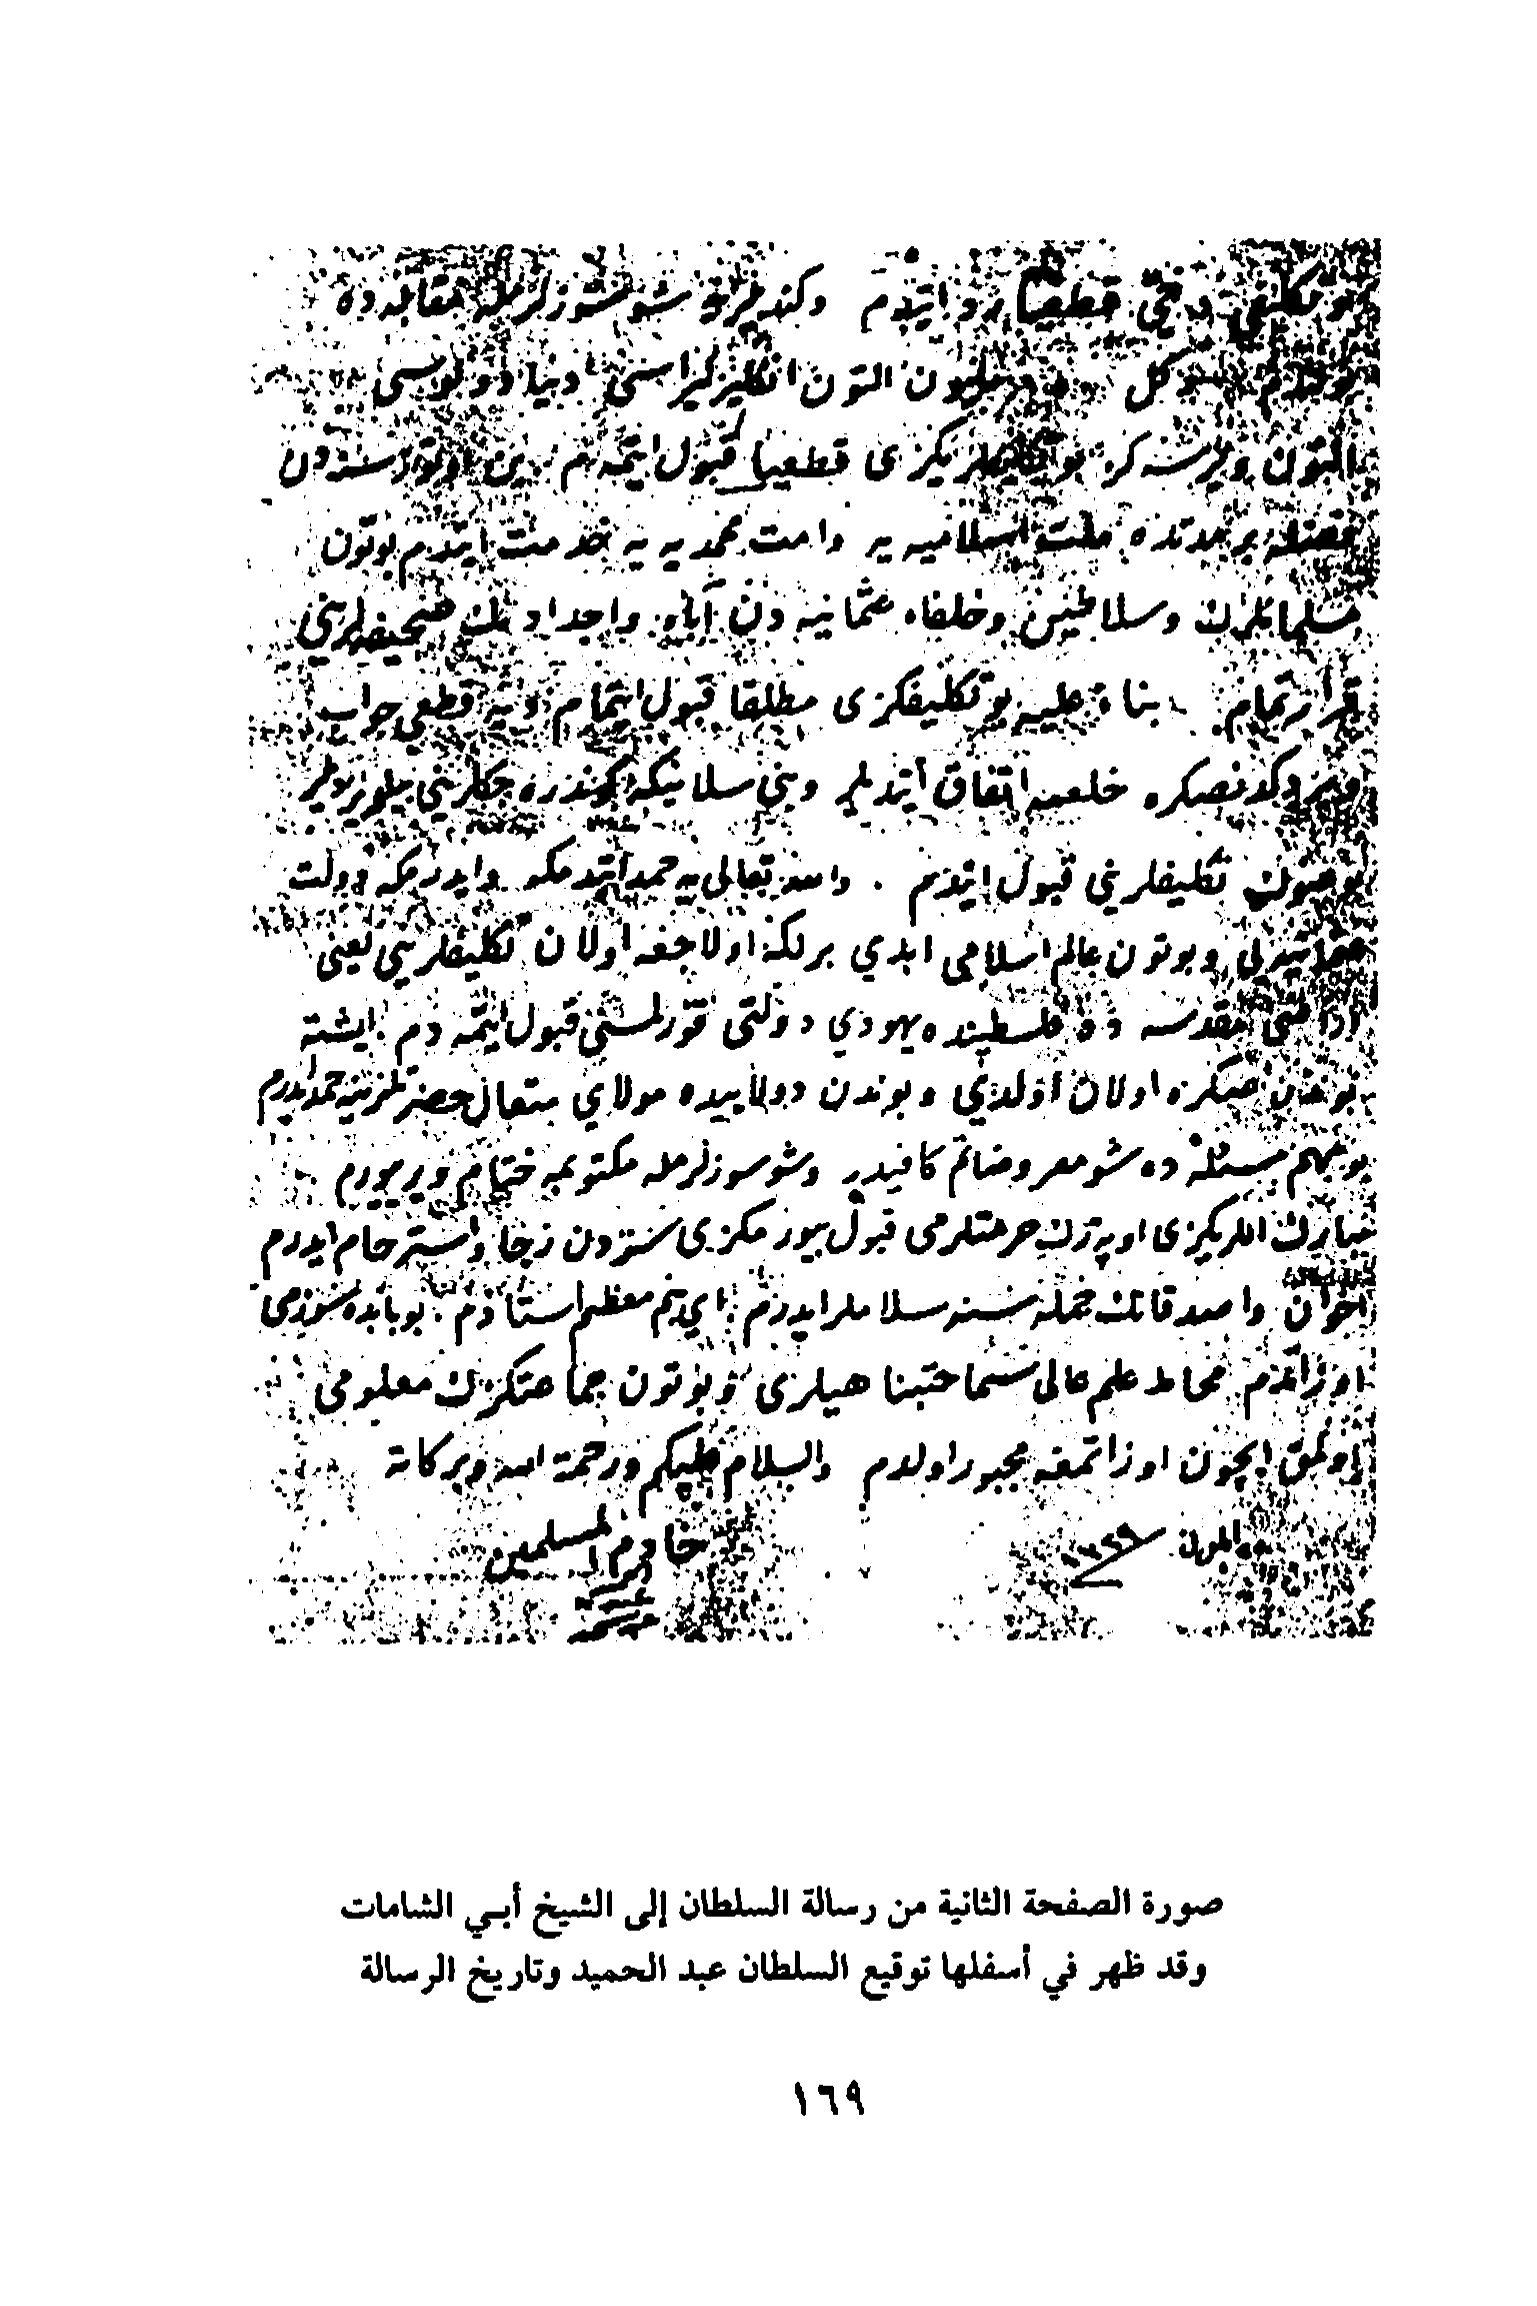 بو تكليفي دخي قطعيا رد ايتدم وكنديلرينه شو سوزلرمله مقابله ده
بولندم دكل ميليون التون انكليز ليراسي دنيا دولوسي
التون ويرسه كز بو تكليفلريكزى قطعيا قبول ايتمه م بن اوتوز سنه دن
فضله بر مدتده ملت اسلاميه يه وامت محمديه يه خدمت ايتدم بوتون
مسلمانلرك وسلاطين وخلفاء عثمانيه دن آباء واجدادمك صحيفه لريني
قرارتمام بناء عليه بو تكليفكزى مطلقا قبول ايتمام ديه قطعي جواب
ويردكدنصكره خلعمه اتفاق ايتديلر وبني سلانيكه كوندره جكلريني بيلديرديلر
بو صوك تكليفلريني قبول ايتدم . والله تعالى يه حمد ايتدمكه وايدرمكه دولت
عثمانيه لى وبوتون عالم اسلامى ابدي بر لكه اولاجغه اولان تكليفلريني يعني
اراضئ مقدسه ده فلسطينده يهودي دولتى قورلمسني قبول ايتمه دم ايشته
بوندن صكره اولان اولدي وبوندن دولاييده مولاي متعال حضرتلرينه حمد ايدرم
بو مهم مسئله ده شو معروضاتم كافيدر وشو سوزلرمله مكتوبمه ختام ويريورم
مبارك اللريكزى اوپه رك حرمتلرمى قبول بيورمكزى سزدن رجا واسترحام ايدرم
اخوان واصدقانك جمله سنه سلاملر ايدرم اي بنم معظم استاذم بو بابده سوزمى
اوزاتدم محاط علم عالى سماحتپناهيلرى وبوتون جماعتكزك معلومى
اولمق ايچون اوزاتمغه مجبور اولدم والسلام عليكم ورحمة الله وبركاته
ايلول ١٣٢٩
خادم المسلمين
صورة الصفحة الثانية من رسالة السلطان إلى الشيخ أبي الشامات
وقد ظهر في أسفلها توقيع السلطان عبد الحميد وتاريخ الرسالة
١٦٩